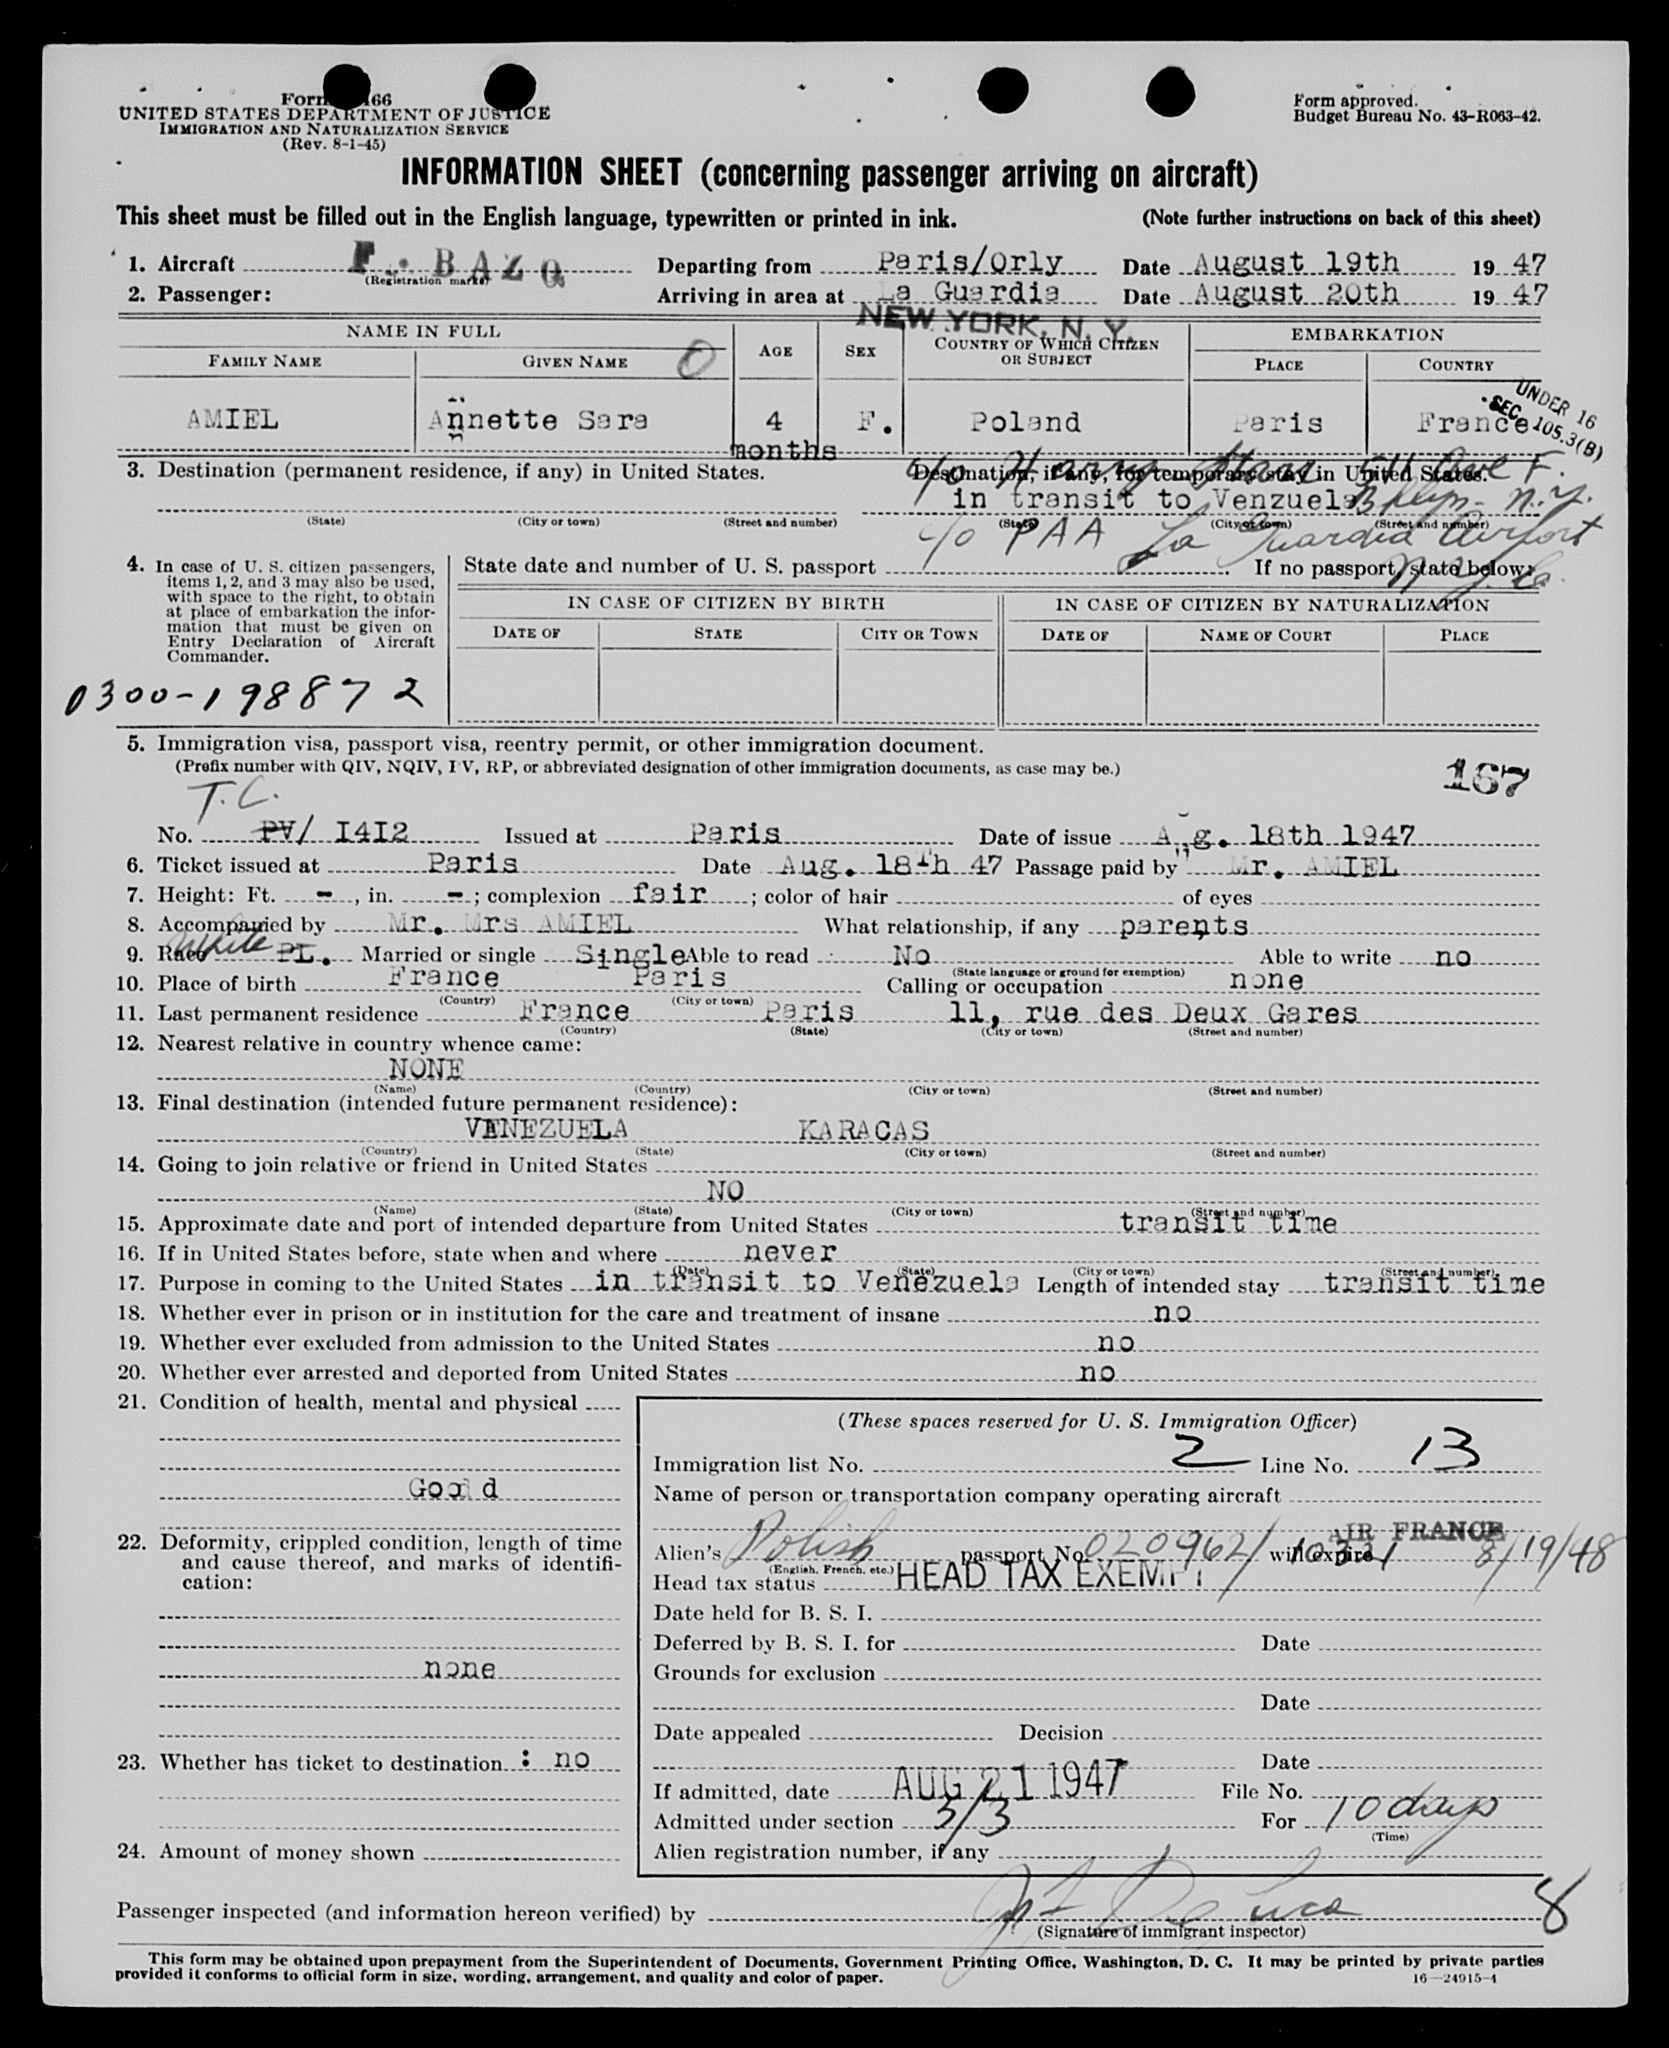 Form 466
UNITED STATES DEPARTMENT OF JUSTICE
IMMIGRATION AND NATURALIZATION SERVICE
(Rev. 8-1-45)
Form approved.
Budget Bureau No. 43-R063-42.
INFORMATION SHEET (concerning passenger arriving on aircraft)
This sheet must be filled out in the English language, typewritten or printed in ink. (Note further instructions on back of this sheet)
1. Aircraft F. BAZQ Departing from Paris/Orly Date August 19th 1947
(Registration marks)
2. Passenger: Arriving in area at La Guardia Date August 20th 1947
NEW YORK, N. Y.
NAME IN FULL AGE SEX COUNTRY OF WHICH CITIZEN OR SUBJECT EMBARKATION
FAMILY NAME GIVEN NAME 0 PLACE COUNTRY
UNDER 16
SEC. 105.3(B)
AMIEL Annette Sara 4 months F. Poland Paris France
3. Destination (permanent residence, if any) in United States. Destination, if any, for temporary stay in United States.
c/o Harry Ave F.
in transit to Venzuela Bklyn- N.Y.
(State) (City or town) (Street and number) (State) (City or town) (Street and number)
c/o PAA La Guardia Airport
N.Y.C.
4. In case of U. S. citizen passengers,
items 1, 2, and 3 may also be used,
with space to the right, to obtain
at place of embarkation the infor-
mation that must be given on
Entry Declaration of Aircraft
Commander.
State date and number of U. S. passport If no passport, state below:
IN CASE OF CITIZEN BY BIRTH IN CASE OF CITIZEN BY NATURALIZATION
DATE OF STATE CITY OR TOWN DATE OF NAME OF COURT PLACE
0300-198872
5. Immigration visa, passport visa, reentry permit, or other immigration document.
(Prefix number with QIV, NQIV, IV, RP, or abbreviated designation of other immigration documents, as case may be.)
167
T.C.
No. PV/ I4I2 Issued at Paris Date of issue Aug. 18th 1947
6. Ticket issued at Paris Date Aug. 18Th 47 Passage paid by Mr. AMIEL
7. Height: Ft. -, in. -; complexion fair; color of hair of eyes
8. Accompanied by Mr. Mrs AMIEL What relationship, if any parents
9. Race White PL. Married or single Single Able to read No Able to write no
(State language or ground for exemption)
10. Place of birth France Paris Calling or occupation none
(Country) (City or town)
11. Last permanent residence France Paris 11, rue des Deux Gares
(Country) (State) (City or town) (Street and number)
12. Nearest relative in country whence came:
NONE
(Name) (Country) (City or town) (Street and number)
13. Final destination (intended future permanent residence):
VENEZUELA KARACAS
(Country) (State) (City or town) (Street and number)
14. Going to join relative or friend in United States
NO
(Name) (State) (City or town) (Street and number)
15. Approximate date and port of intended departure from United States transit time
16. If in United States before, state when and where never
(Date) (State) (City or town) (Street and number)
17. Purpose in coming to the United States in transit to Venezuela Length of intended stay transit time
18. Whether ever in prison or in institution for the care and treatment of insane no
19. Whether ever excluded from admission to the United States no
20. Whether ever arrested and deported from United States no
21. Condition of health, mental and physical
Good
22. Deformity, crippled condition, length of time
and cause thereof, and marks of identifi-
cation:
none
23. Whether has ticket to destination : no
24. Amount of money shown
(These spaces reserved for U. S. Immigration Officer)
Immigration list No. 2 Line No. 13
Name of person or transportation company operating aircraft
AIR FRANCE
Alien's Polish passport No. 020962/10331 will expire 8/19/48
(English, French, etc.)
Head tax status HEAD TAX EXEMPT
Date held for B. S. I.
Deferred by B. S. I. for Date
Grounds for exclusion
Date
Date appealed Decision
Date
If admitted, date AUG 21 1947 File No.
Admitted under section 3/3 For 10 days
(Time)
Alien registration number, if any
Passenger inspected (and information hereon verified) by De Luca 8
(Signature of immigrant inspector)
This form may be obtained upon prepayment from the Superintendent of Documents, Government Printing Office, Washington, D. C. It may be printed by private parties
provided it conforms to official form in size, wording, arrangement, and quality and color of paper.
16—24915-4